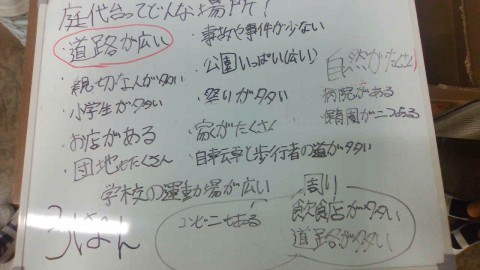 庭代台ってどんな場所！
道路が広い
・親切な人が多い
・小学生が多い
・お店がある
・団地もたくさん
・事故や事件が少ない
・公園いっぱい(広い)
・祭りが多い
・家がたくさん
・自転車と歩行者の道が多い
自然がたくさん
病院がある
・保育園が二つある
学校の運動場が広い
コンビニもある
周り
飲食店が多い
道路が多い